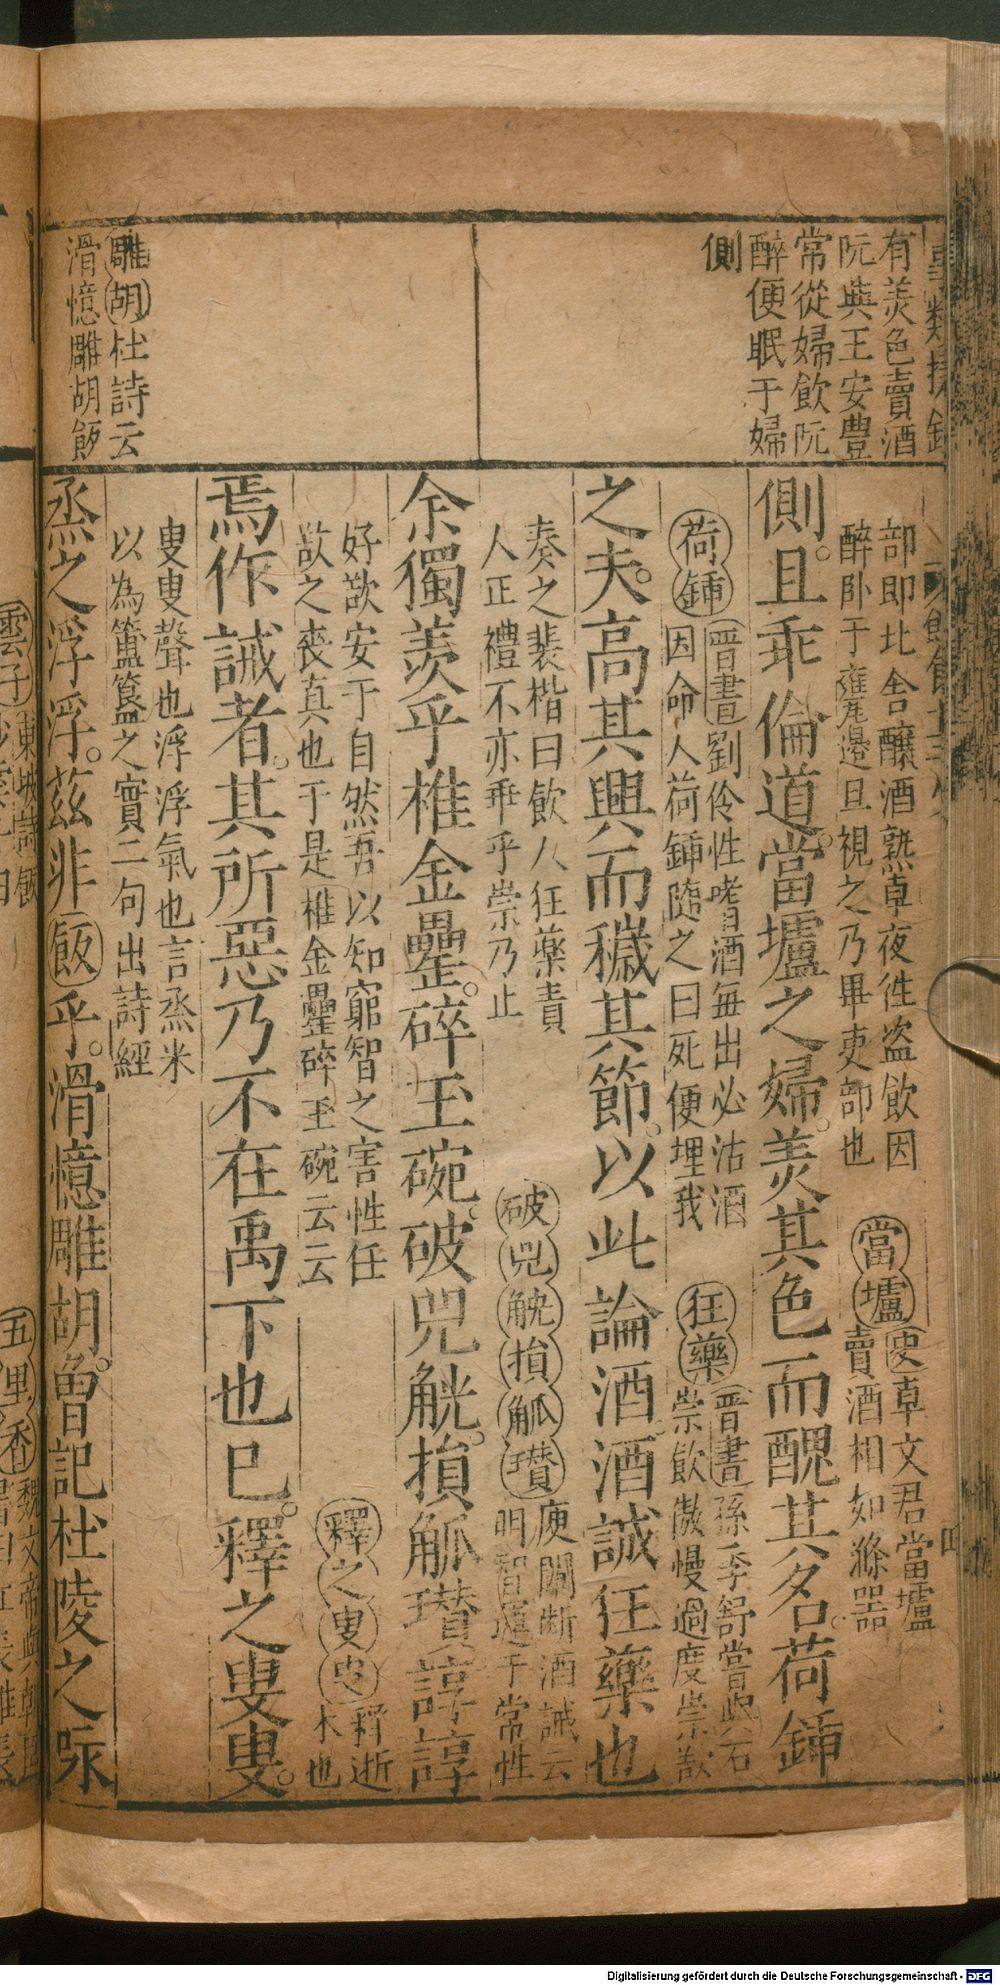 有羙色賣酒
阮與王安豊
常從婦飲阮
醉便眠于婦
側
雕胡杜詩云
滑憶雕胡飯
部即比舍釀酒熟卓夜徃盗飲因
醉卧于甕邉旦視之乃畢吏部也
當壚史卓文君當壚
賣酒相如滌器
側且乖倫道當壚之婦羙其色而醜其名荷鍤
荷鍤晉書劉伶性嗜酒每出必沽酒
因命人荷鍤隨之曰死便埋我
狂藥晉書孫季舒嘗與石
崇飲傲慢過度崇欲
之夫高其興而穢其節以此論酒酒誠狂藥也
奏之裴楷曰飲人狂藥責
人正禮不亦乖乎崇乃止
破兕觥損觚瓚庾闡断酒誡云
明智運于常性
余獨羨乎椎金罍碎玉碗破兕觥損觚瓚諄諄
好歆安于自然吾以知窮智之害性任
歆之喪真也于是椎金罍碎玉碗云云
焉作誡者其所惡乃不在禹下也巳釋之叟叟
釋之叟叟釋逝
米也
叟叟聲也浮浮氣也言烝米
以為簠簋之實二句出詩經
烝之浮浮茲非飯乎滑憶雕胡魯記杜陵之詠
Digitalisierung gefördert durch die Deutsche Forschungsgemeinschaft - DFG